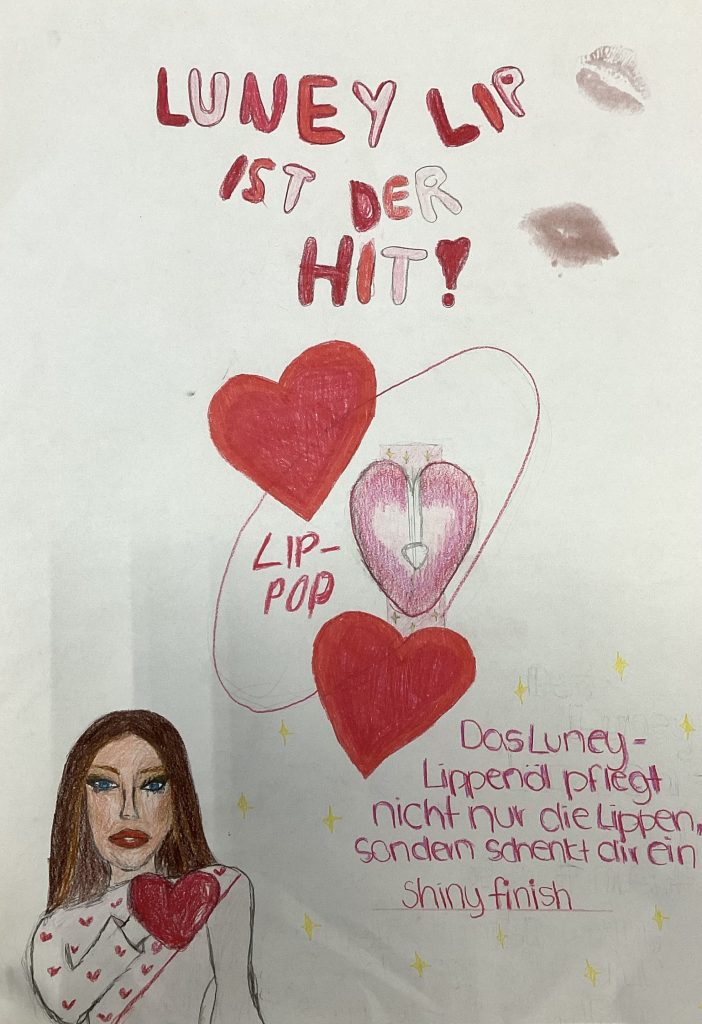 LUNEY LIP
IST DER
HIT!
LIP-
POP
Das Luney-
Lippenöl pflegt
nicht nur die Lippen,
sondern schenkt dir ein
shiny finish